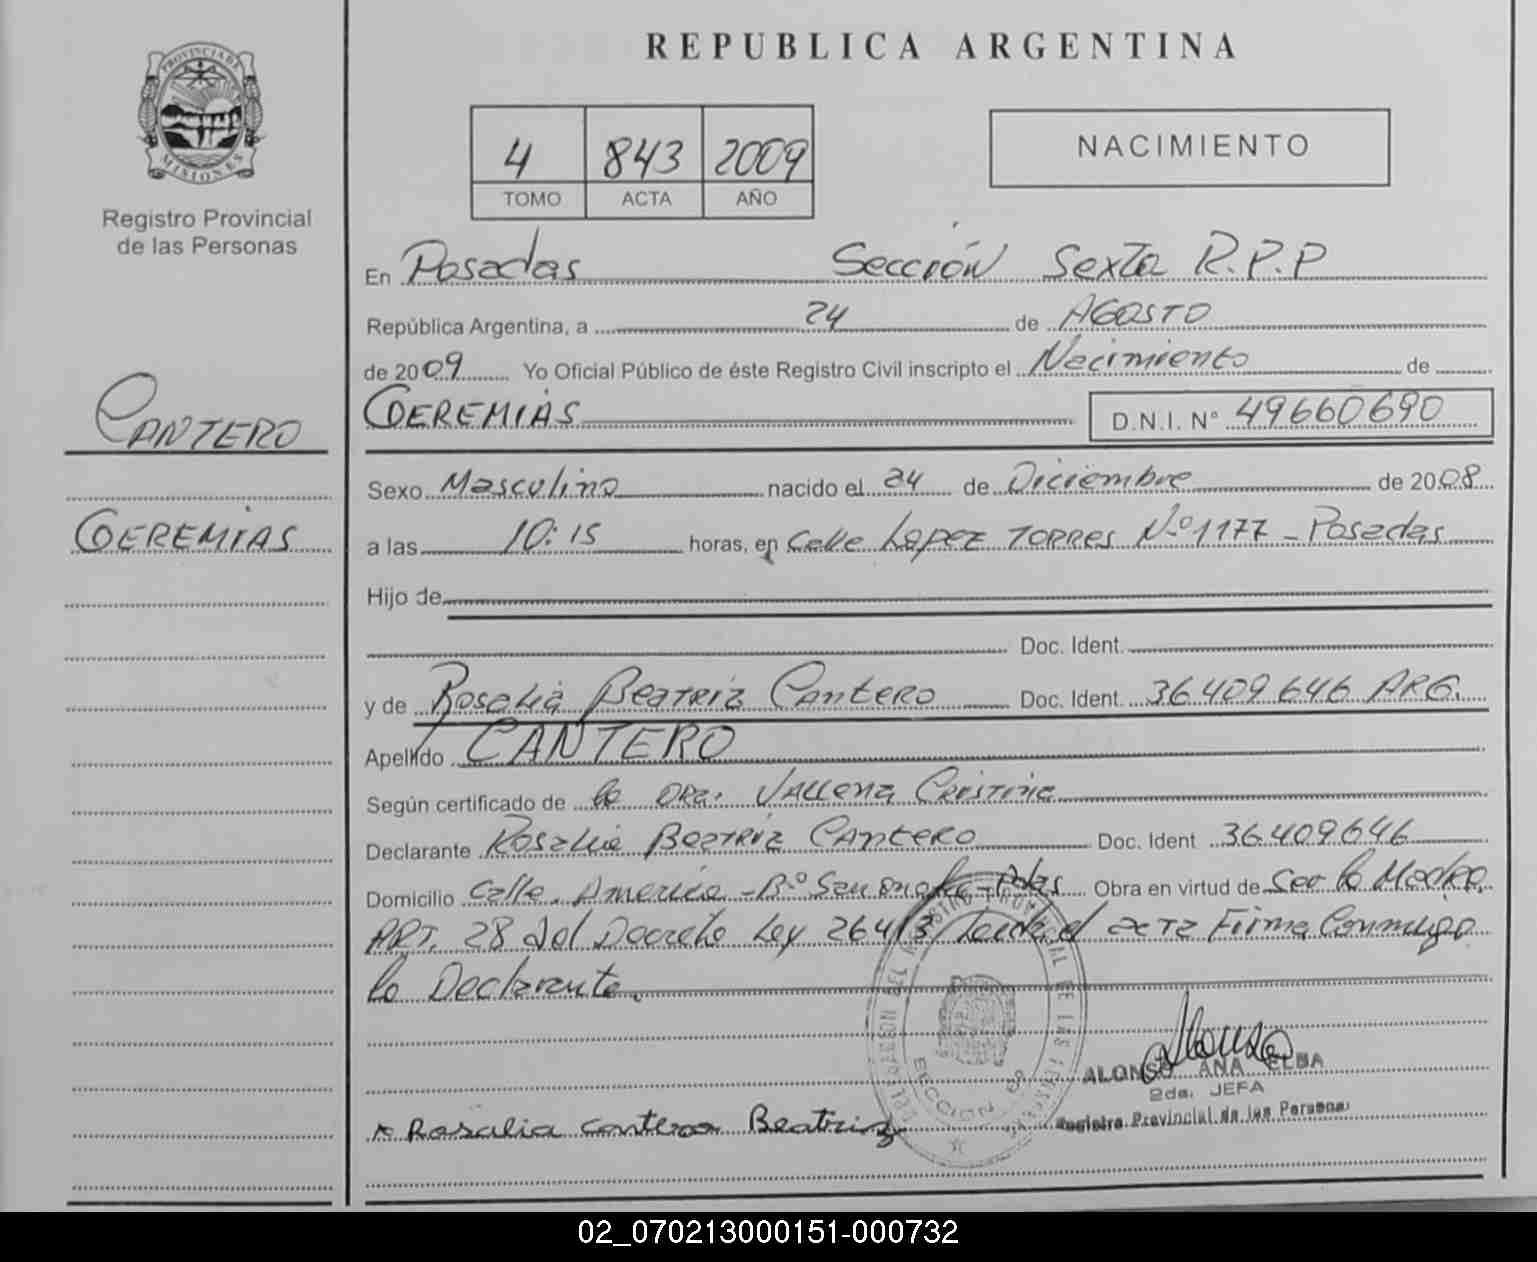 REPUBLICA ARGENTINA
PROVINCIA DE
MISIONES
Registro Provincial
de las Personas
4 843 2009
TOMO ACTA AÑO
NACIMIENTO
En Posadas Sección Sexta R.P.P
República Argentina, a 24 de AGOSTO
de 2009 Yo Oficial Público de éste Registro Civil inscripto el Nacimiento de
GEREMIAS D.N.I. Nº 49660690
CANTERO
GEREMIAS
Sexo Masculino nacido el 24 de Diciembre de 2008
a las 10:15 horas, en Calle Lopez TORRES Nº 1177 - Posadas
Hijo de
Doc. Ident.
y de Rosalia Beatriz Cantero Doc. Ident. 36.409.646 ARG.
Apellido CANTERO
Según certificado de la DRA. Vallena Cristina
Declarante Rosalia Beatriz Cantero Doc. Ident 36.409646
Domicilio Calle America - Bº San - Pdas Obra en virtud de Ser la Madre
ART. 28 del Decreto Ley 26413 Leida el acta Firma Conmigo
la Declarante.
DELEGACION DEL REGISTRO PROVINCIAL DE LAS PERSONAS
SECCION 6ª
ALONSO ANA ELBA
2da. JEFA
Registro Provincial de las Personas
x Rosalia cantero Beatriz
02_070213000151-000732